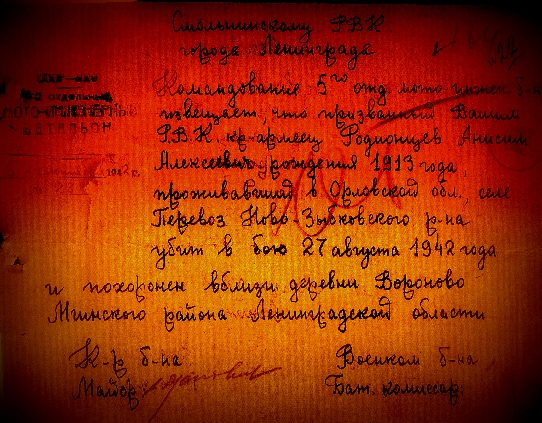 Смольнинскому РВК
города Ленинграда
Командование 5го отд. мото инжен.
извещает, что призванный Вашим
Р.В.К. кр-армеец Родионцев Анисим
Алексеевич рождения 1913 года,
проживавший в Орловской обл., селе
Перевоз Ново-Зыбковского р-на
убит в бою 27 августа 1942 года
и похоронен вблизи деревни Вороново
Мгинского района Ленинградской области
МОТО-ИНЖЕНЕРНЫЙ
БАТАЛЬОН
К-р б-на
Майор:
Военком б-на
Бат. комиссар: